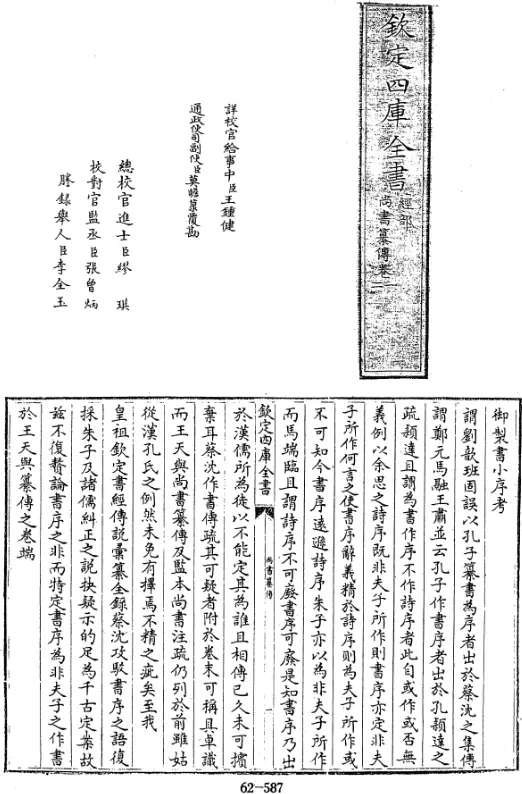 欽定四庫全書
經部
尚書纂傳卷一
詳校官給事中臣王鍾健
通政使司副使臣莫瞻菉覆勘
總校官進士臣繆琪
校對官監丞臣張曾炳
謄錄舉人臣李全玉
御製書小序考
謂劉歆班固誤以孔子纂書為序者出於蔡沈之集傳
謂鄭元馬融王肅並云孔子作書序者出於孔穎達之
疏穎達且謂為書作序不作詩序者此自或作或否無
義例以余思之詩序既非夫子所作則書序亦定非夫
子所作何言之使書序辭義精於詩序則為夫子所作或
不可知今書序遠遜詩序朱子亦以為非夫子所作
而馬端臨且謂詩序不可廢書序可廢是知書序乃出
欽定四庫全書
尚書纂傳
於漢儒所為徒以不能定其為誰且相傳已久未可擯
棄耳蔡沈作書傳疏其可疑者附於卷末可稱具卓識
而王天與尚書纂傳及監本尚書注疏仍列於前雖姑
從漢孔氏之例然未免有擇焉不精之疵矣至我
皇祖欽定書經傳說彙纂全錄蔡沈攻駁書序之語復
採朱子及諸儒糾正之說抉疑示的足為千古定案故
茲不復贅論書序之非而特定書序為非夫子之作書
於王天與纂傳之卷端
62-587